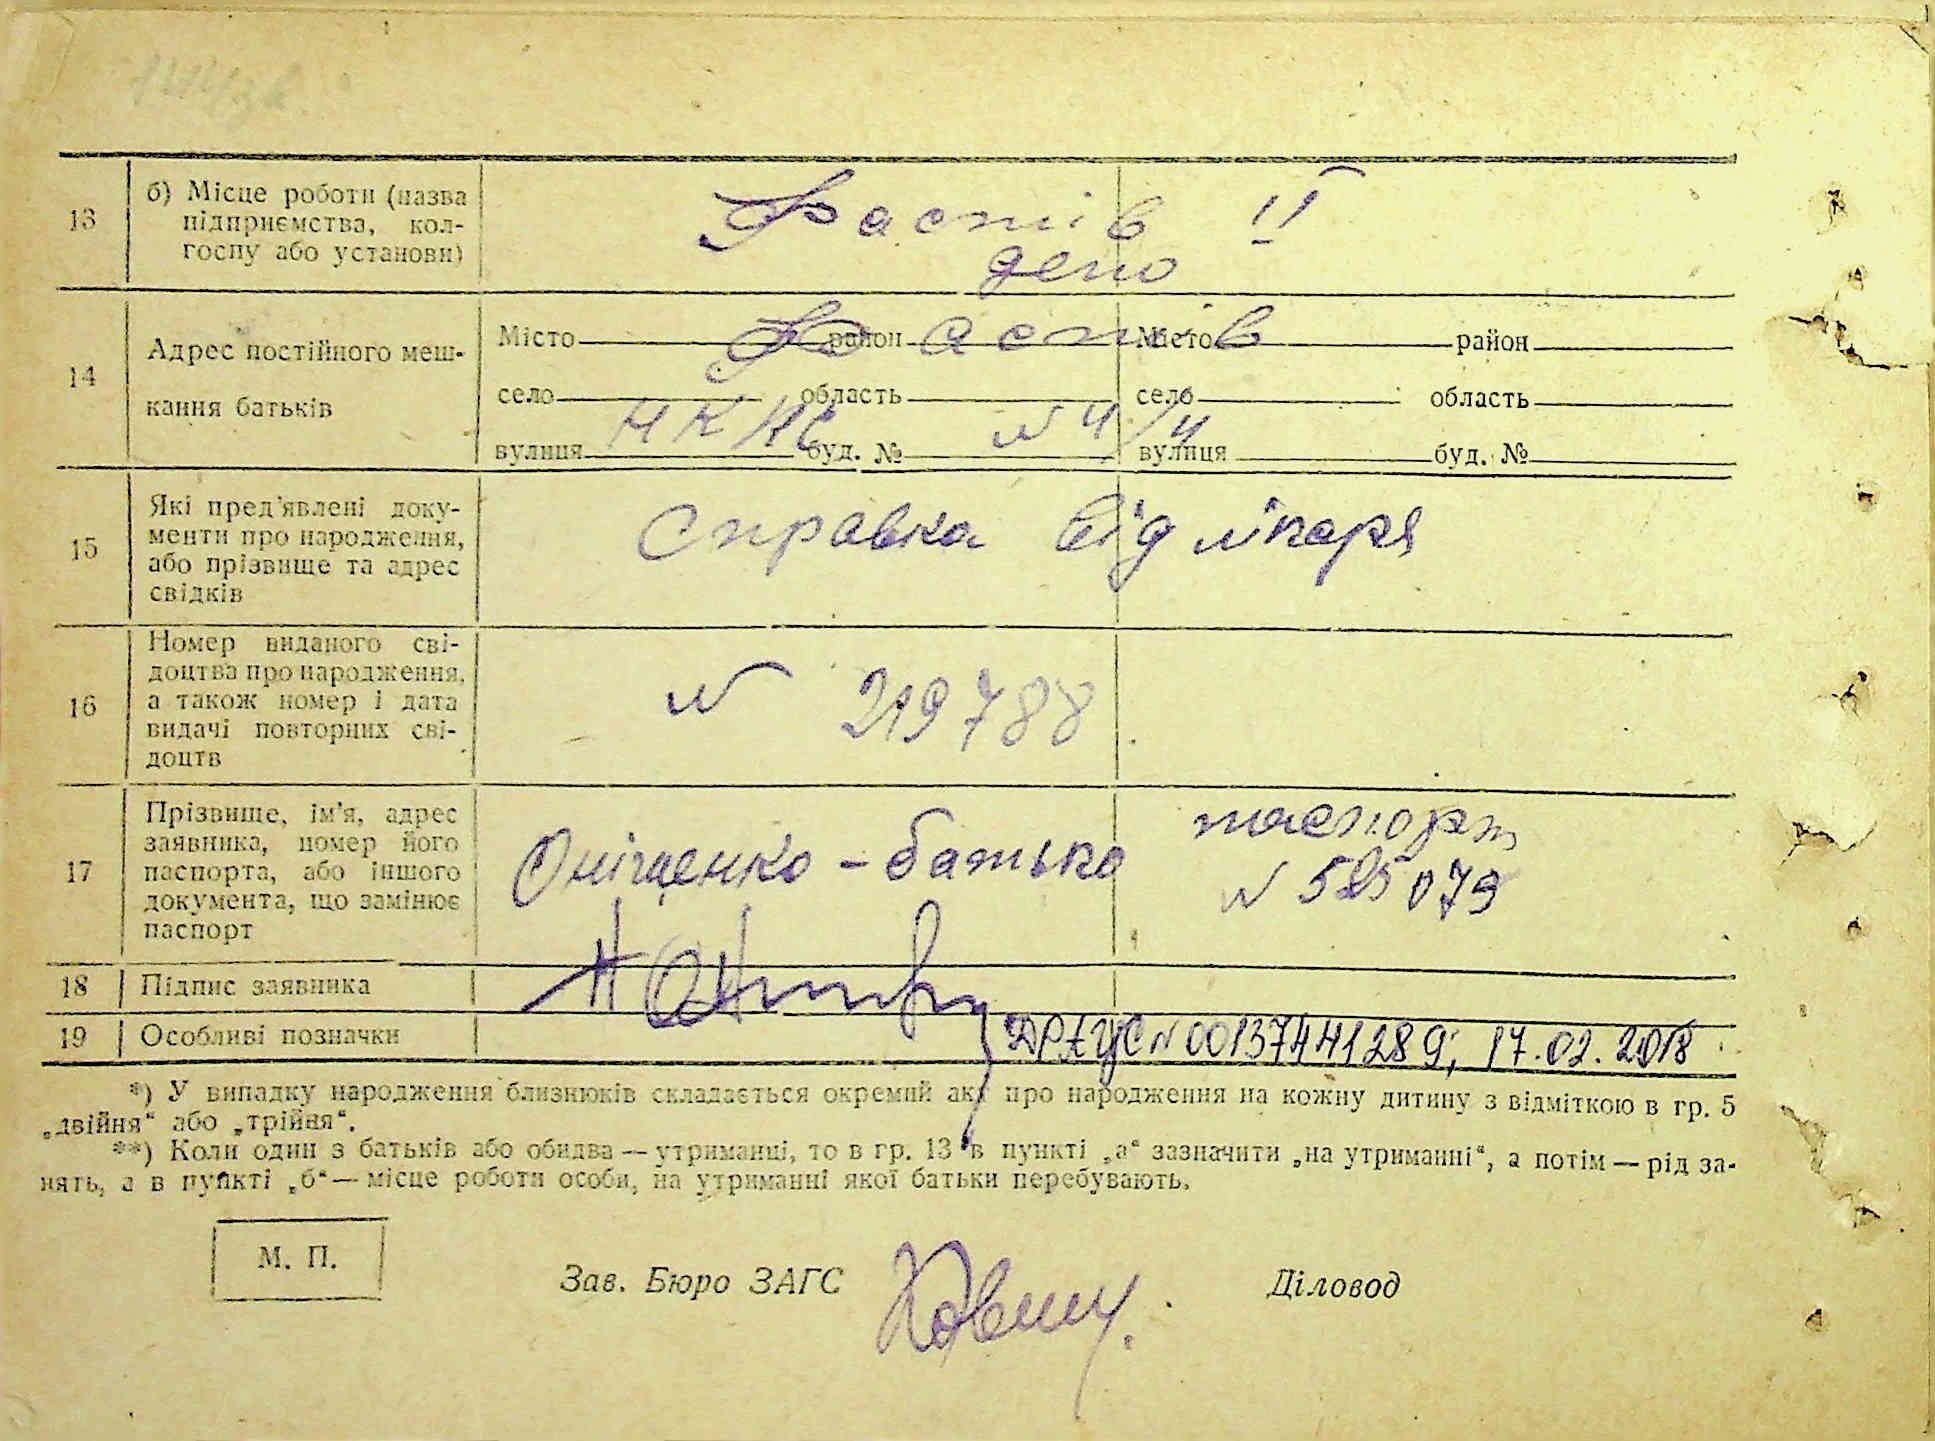 13 б) Місце роботи (назва
підприємства, кол-
госпу або установи)
Фастів II
депо
14 Адрес постійного меш-
кання батьків
Місто район Місто район
Фастів
село область село область
вулиця буд. № вулиця буд. №
№ 4/4
15 Які пред'явлені доку-
менти про народження,
або прізвище та адрес
свідків
Справка від лікаря
16 Номер виданого сві-
доцтва про народження,
а також номер і дата
видачі повторних сві-
доцтв
№ 219788
17 Прізвище, ім'я, адрес
заявника, номер його
паспорта, або іншого
документа, що замінює
паспорт
Оніщенко - батько
паспорт
№ 525079
18 Підпис заявника
19 Особливі позначки
ДРАЦС № 00137441289; 17.02.2018
*) У випадку народження близнюків складається окремий акт про народження на кожну дитину з відміткою в гр. 5
„двійня“ або „трійня“.
**) Коли один з батьків або обидва — утриманці, то в гр. 13 в пункті „а“ зазначити „на утриманні“, а потім — рід за-
нять, а в пункті „б“ — місце роботи особи, на утриманні якої батьки перебувають.
М. П.
Зав. Бюро ЗАГС Діловод